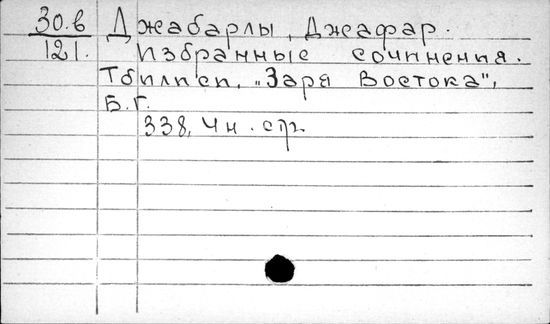 30.в Джабарлы, Джафар.
121. Избранные сочинения.
Тбилиси, "Заря Востока",
Б.г.
338, 4 н. стр.